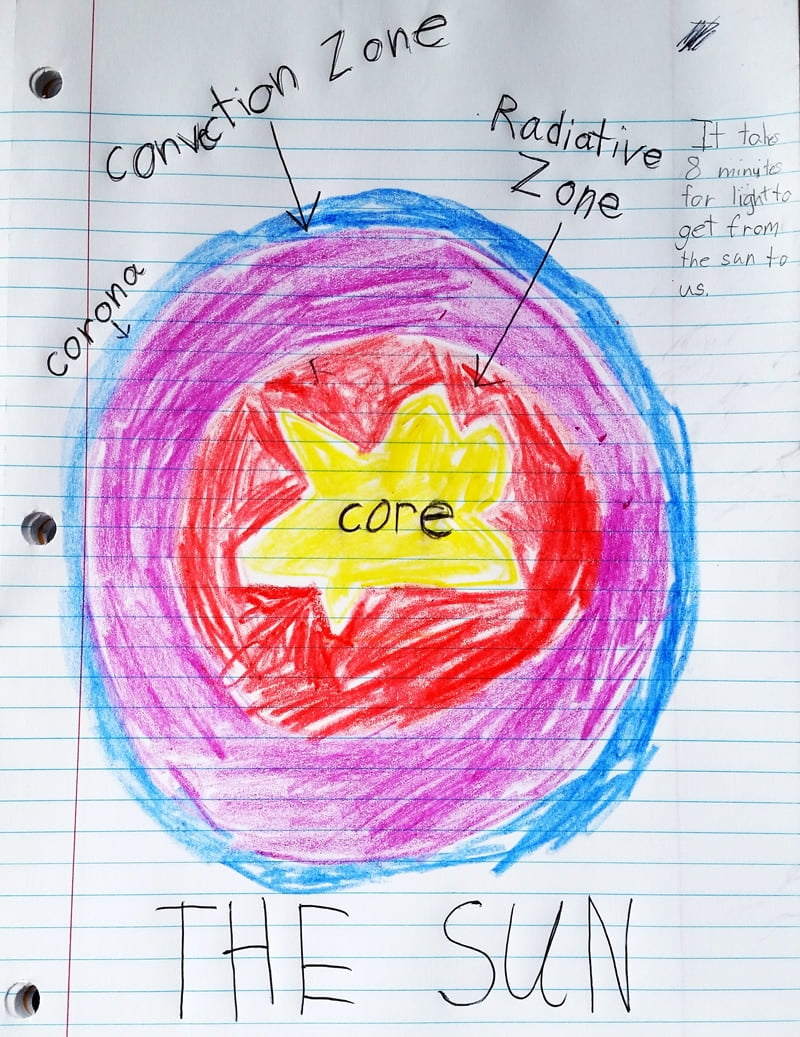 Convection Zone
Radiative
Zone
It taks
8 minutes
for light to
get from
the sun to
us.
corona
core
THE SUN